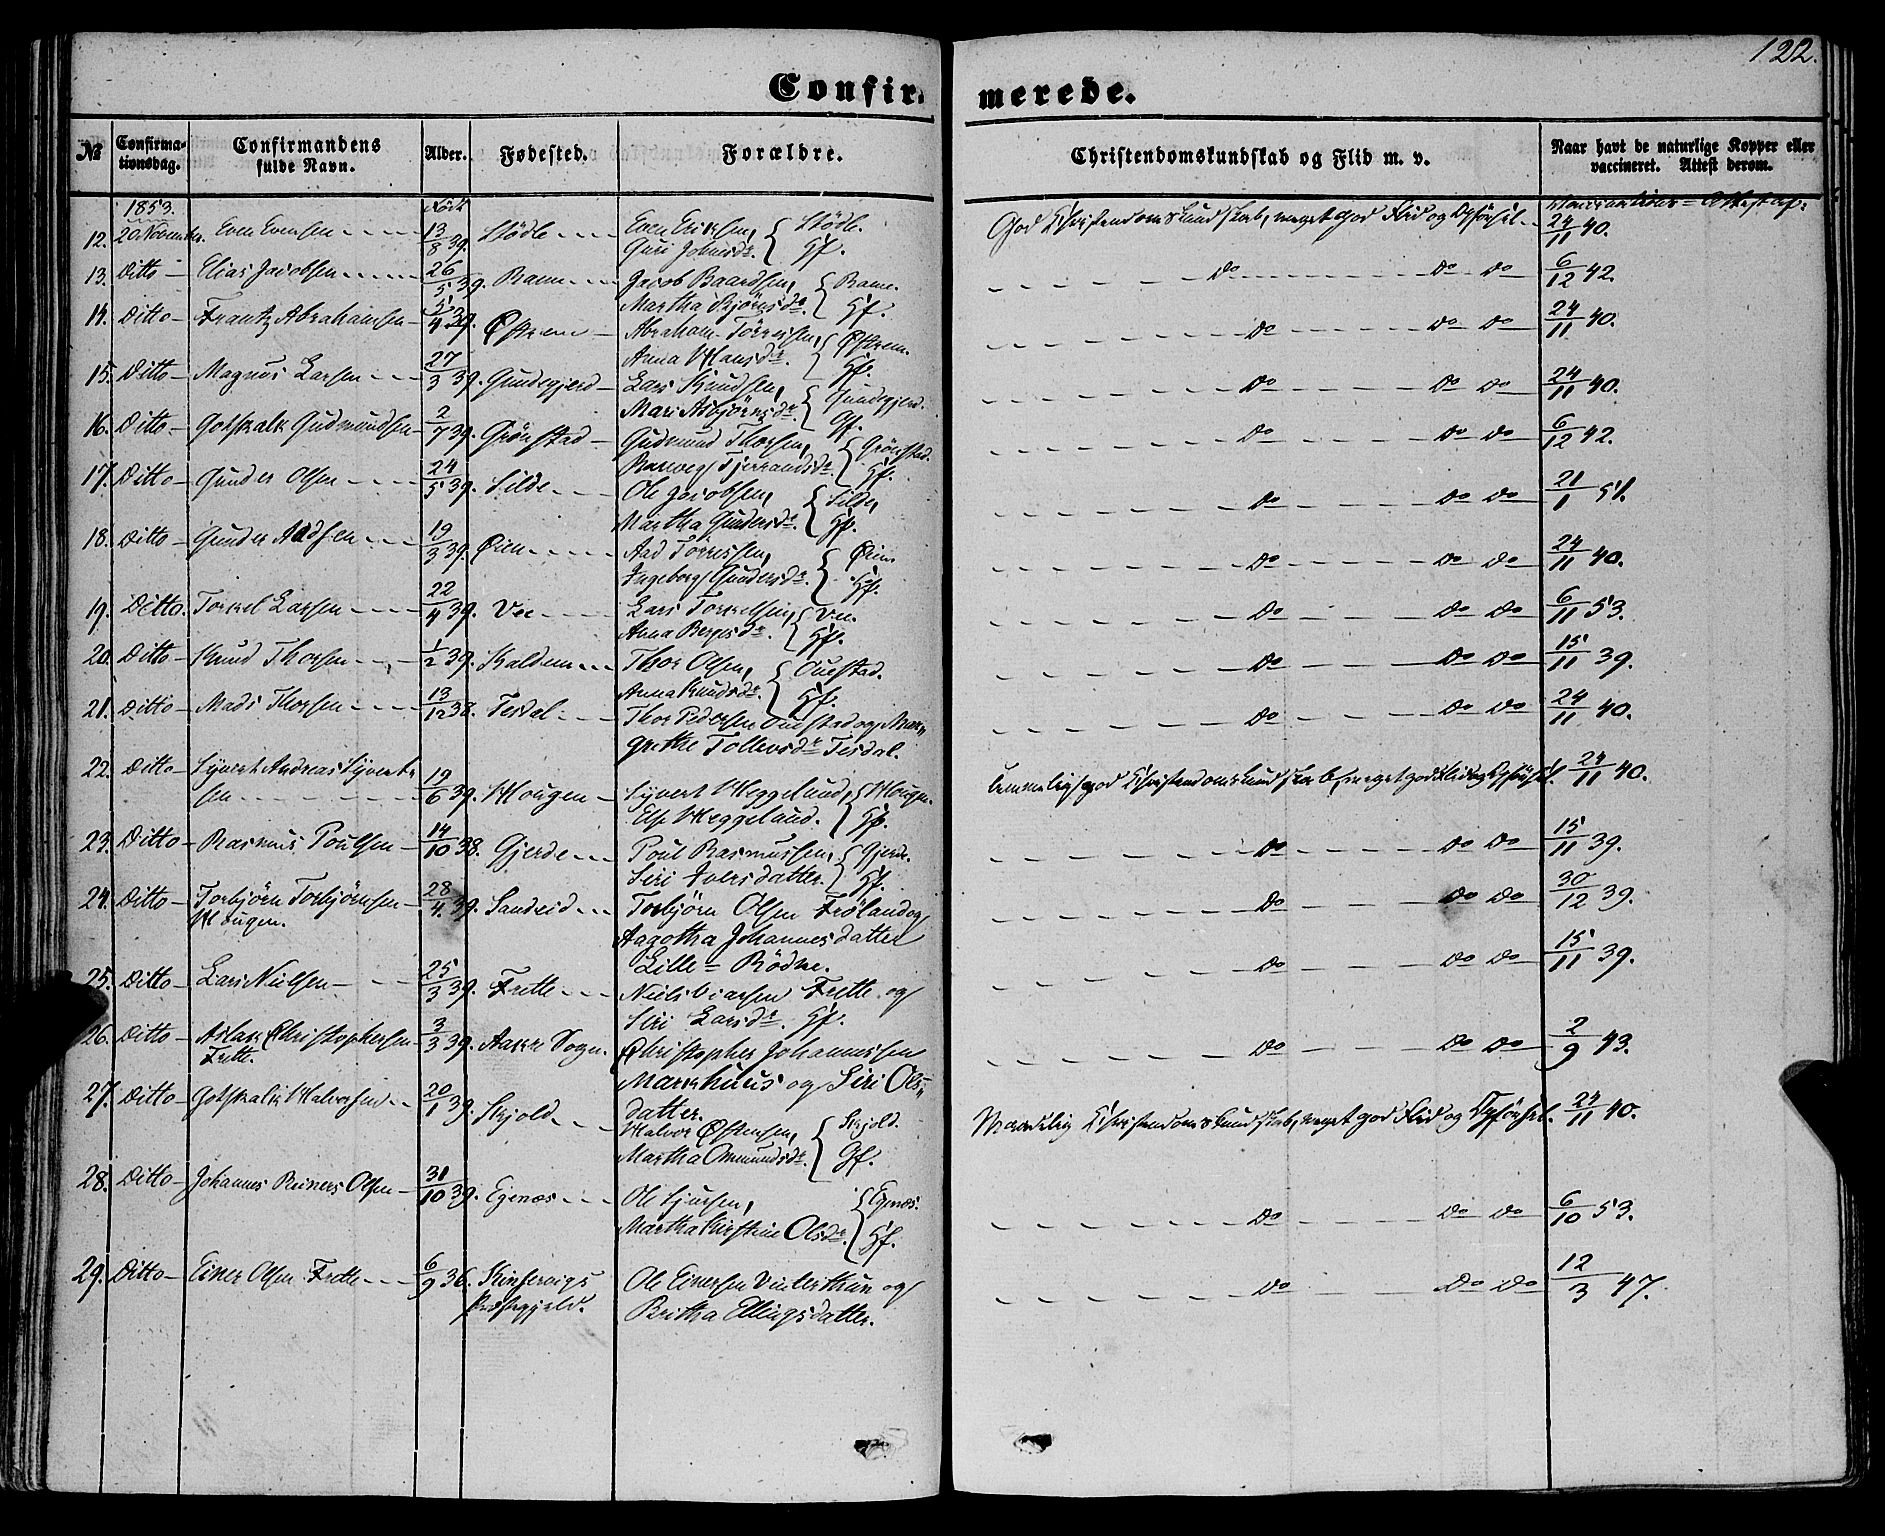 122.
Confirmerede.
№ Confirmationsdag. Confirmandens fulde Navn. Alder. Fødested. Forældre. Christendomskundskab og Flid m. v. Naar havt de naturlige Kopper eller vaccineret. Attest derom.
1853. født Vaccinations=Attestaf:
12. 20 Novembr. Even Evensen 13/8 39. Stödle Even Eriksen, Guri Johnsdr. Stödle. Gf. God Christendomskundskab, meget god Flid og Opførsel. 24/11 40.
13. Ditto Elias Jacobsen 26/5 39. Ramn Jacob Baardsen, Martha Bjørnsdr. Gf. Do Do Do 6/12 42.
14. Ditto Frantz Abrahamsen 5/4 39. Østrem Abraham Tørressen, Anna Hansdr. Østrem. Gf. Do Do Do 24/11 40.
15. Ditto Magnus Larsen 27/3 39. Gundsgjerd Lars Knudsen, Mari Asbjørnsdr. Gundsgjerd. Gf. Do Do Do 24/11 40.
16. Ditto Gotskalk Gudmundsen 2/7 39. Grönstad Gudmund Thorsen, Tjerrandsdr. Grönstad. Gf. Do Do Do 6/12 42.
17. Ditto Gunder Olsen 24/5 39. Silde Ole Jacobsen, Martha Gundersdr. Silde, Gf. Do Do Do 21/1 51.
18. Ditto Gunder Aadsen 19/3 39. Øien Aad Tørressen, Ingeborg Gundersdr. Øien. Gf. Do Do Do 24/11 40.
19. Ditto. Torkel Larsen 22/4 39. Vee Lars Torkelsen, Anna Bergesdr. Vee. Gf. Do Do Do 6/11 53.
20. Ditto Knud Thorsen 1/2 39. Kaldem Thor Olsen, Anna Knudsdr. Ouestad. Gf. Do Do Do 15/11 39.
21. Ditto Mads Thorsen 13/12 38. Tesdal Thor Pedersen Ouestad og Mar,,
grethe Tollevsdr Tesdal. Do Do Do 24/11 40.
22. Ditto Syvert Andreas Syvert,,
sen 19/6 39. Hougen Syvert Heggelund, Else Heggeland. Hougen. Gf. temmelig god Christendomskundskab, meget god Flid og Opførsel. 24/11 40.
23. Ditto Rasmus Poulsen 14/10 38. Gjerde Poul Rasmussen, Siri Iversdatter. Gjerde. Gf. Do Do Do 15/11 39.
24. Ditto Torbjörn Torbjörnsen
Hougen. 28/4 39. Sandeid Torbjörn Olsen Frøland og
Aagotha Johannesdatter
Lille=Rödne. Do Do Do 30/12 39.
25. Ditto Lars Nielsen 25/3 39. Frette Niels Frette og
Siri Larsdr. Gf. Do Do Do 15/11 39.
26. Ditto Aslak Christophersen
Frette. 3/3 39. Aakre Sogn. Christopher Johannessen
Markhuus og Siri Ols,,
datter. Do Do Do 2/9 43.
27. Ditto Gotskalk Halvorsen 20/1 39. Skjold Halvor Østensen, Martha Ommundsdr. Skjold. Gf. Maadelig Christendomskundskab, meget god Flid og Opførsel. 24/11 40.
28. Ditto Johannes Reiners Olsen 31/10 39. Egenæs Ole Sjursen, Martha Kirstine Olsdr. Egenæs. Gf. Do Do Do 6/10 53.
29. Ditto Einer Olsen Frette 6/9 36. Kinservigs
Præstegjeld. Ole Einersen Vinterthun og
Britha Ellingsdatter. Do Do Do 12/3 47.